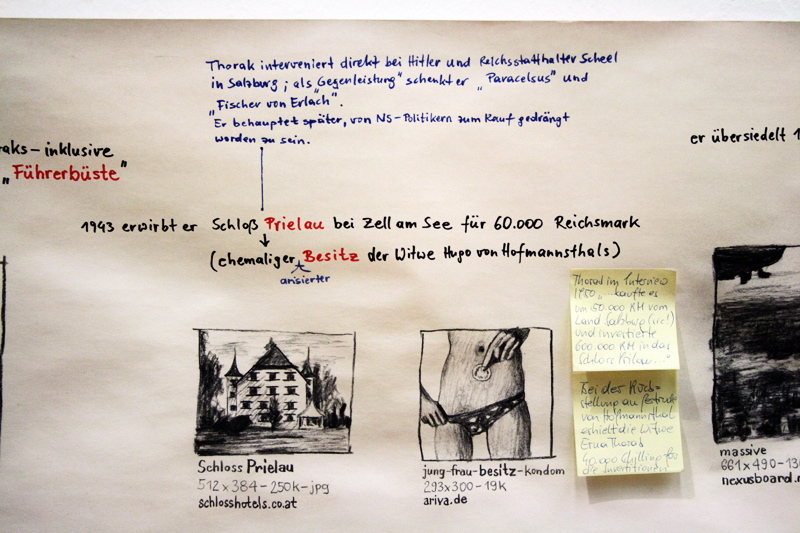 Thorak interveniert direkt bei Hitler und Reichsstatthalter Scheel
in Salzburg; als „Gegenleistung" schenkt er „Paracelsus" und
„Fischer von Erlach".
Er behauptet später, von NS-Politikern zum Kauf gedrängt
worden zu sein.
raks – inklusive
„Führerbüste"
er übersiedelt 1
1943 erwirbt er Schloß Prielau bei Zell am See für 60.000 Reichsmark
(ehemaliger Besitz der Witwe Hugo von Hofmannsthals)
arisierter
Thorak im Interview
1950 „...kaufte es
um 50.000 RM vom
Land Salzburg (sic!)
und investierte
600.000 RM in das
Schloss Prilau..."
Bei der Rück-
stellung an
von Hofmannsthal
erhielt die Witwe
Erna Thorak
40.000 für
die Investitionen
Schloss Prielau
512x384-250k-jpg
schlosshotels.co.at
jung-frau-besitz-kondom
293x300-19k
ariva.de
massive
661x490-13
nexusboard.n